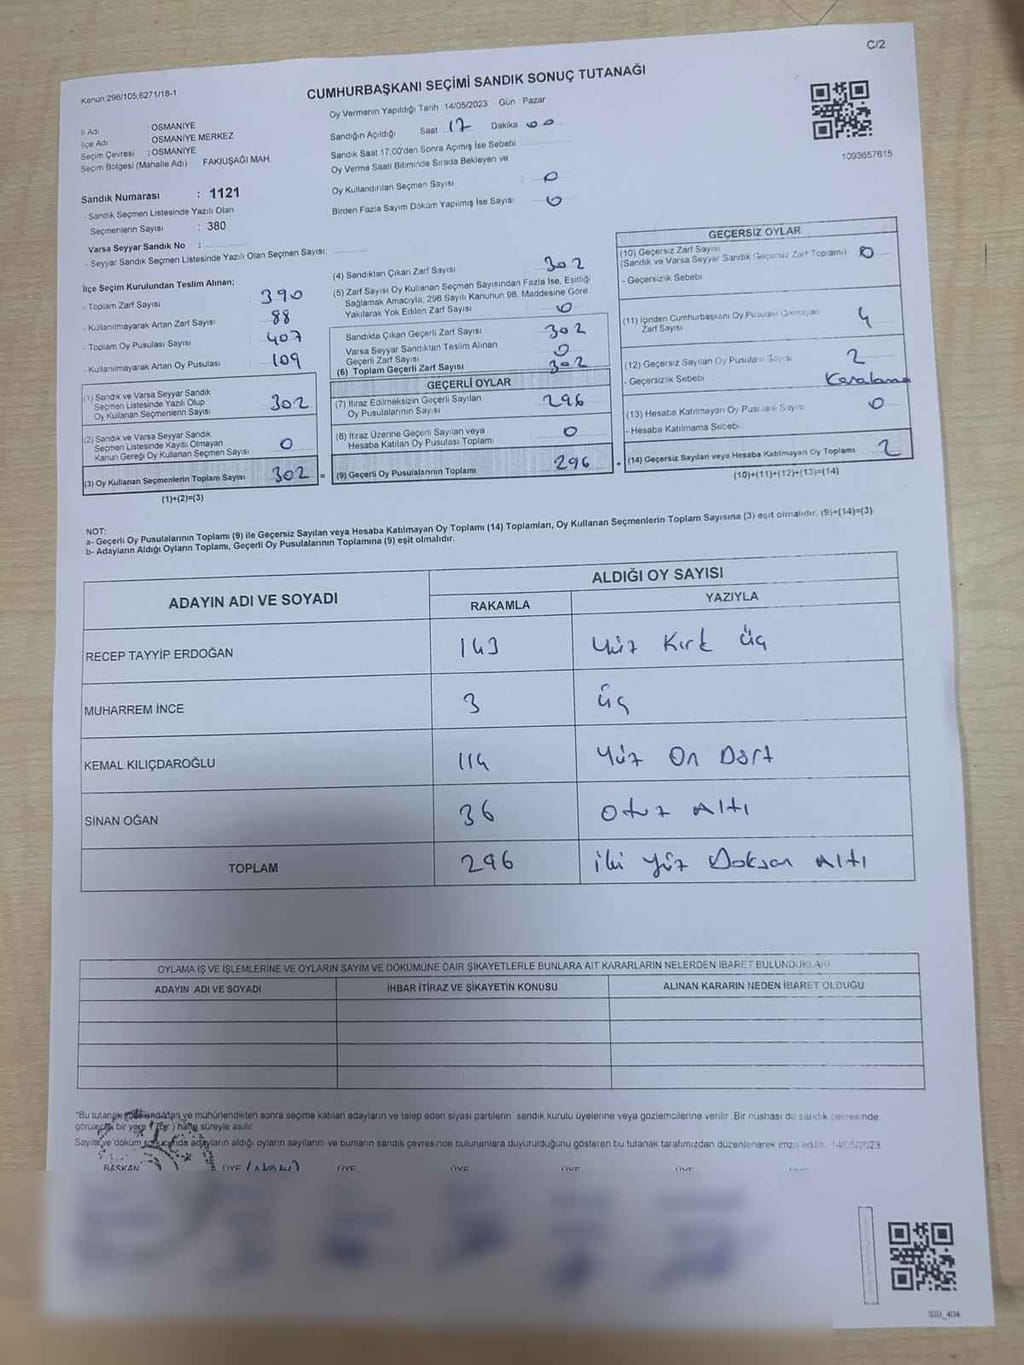 C/2
Kanun:298/105,6271/18-1
CUMHURBAŞKANI SEÇİMİ SANDIK SONUÇ TUTANAĞI
Oy Vermenin Yapıldığı Tarih : 14/05/2023 Gün : Pazar
İl Adı : OSMANİYE
İlçe Adı : OSMANİYE MERKEZ
Seçim Çevresi : OSMANİYE
Seçim Bölgesi (Mahalle Adı) FAKIUŞAĞI MAH.
Sandığın Açıldığı Saat : 17 Dakika 00
Sandık Saat 17:00'den Sonra Açımış İse Sebebi
Oy Verme Saati Bitiminde Sırada Bekleyen ve
Oy Kullandırılan Seçmen Sayısı : 0
Birden Fazla Sayım Döküm Yapılmış İse Sayısı 0
1093657615
Sandık Numarası : 1121
- Sandık Seçmen Listesinde Yazılı Olan
Seçmenlerin Sayısı : 380
Varsa Seyyar Sandık No :
- Seyyar Sandık Seçmen Listesinde Yazılı Olan Seçmen Sayısı:
İlçe Seçim Kurulundan Teslim Alınan;
- Toplam Zarf Sayısı 390
- Kullanılmayarak Artan Zarf Sayısı 88
- Toplam Oy Pusulası Sayısı 407
- Kullanılmayarak Artan Oy Pusulası 109
(1) Sandık ve Varsa Seyyar Sandık
Seçmen Listesinde Yazılı Olup
Oy Kullanan Seçmenlerin Sayısı 302
(2) Sandık ve Varsa Seyyar Sandık
Seçmen Listesinde Kayıtlı Olmayan
Kanun Gereği Oy Kullanan Seçmen Sayısı 0
(3) Oy Kullanan Seçmenlerin Toplam Sayısı 302 =
(1)+(2)=(3)
(4) Sandıktan Çıkan Zarf Sayısı 302
(5) Zarf Sayısı Oy Kullanan Seçmen Sayısından Fazla İse, Eşitliği
Sağlamak Amacıyla; 298 Sayılı Kanunun 98. Maddesine Göre
Yakılarak Yok Edilen Zarf Sayısı 0
Sandıkta Çıkan Geçerli Zarf Sayısı 302
Varsa Seyyar Sandıktan Teslim Alınan
Geçerli Zarf Sayısı 0
(6) Toplam Geçerli Zarf Sayısı 302
GEÇERLİ OYLAR
(7) İtiraz Edilmeksizin Geçerli Sayılan
Oy Pusulalarının Sayısı 296
(8) İtiraz Üzerine Geçerli Sayılan veya
Hesaba Katılan Oy Pusulası Toplamı 0
(9) Geçerli Oy Pusulalarının Toplamı 296 +
GEÇERSİZ OYLAR
(10) Geçersiz Zarf Sayısı
(Sandık ve Varsa Seyyar Sandık Geçersiz Zarf Toplamı) 0
- Geçersizlik Sebebi
(11) İçinden Cumhurbaşkanı Oy Pusulası Çıkmayan
Zarf Sayısı 4
(12) Geçersiz Sayılan Oy Pusulası Sayısı 2
- Geçersizlik Sebebi Karalama
(13) Hesaba Katılmayan Oy Pusulası Sayısı 0
- Hesaba Katılmama Sebebi :
(14) Geçersiz Sayılan veya Hesaba Katılmayan Oy Toplamı 2
(10)+(11)+(12)+(13)=(14)
NOT:
a- Geçerli Oy Pusulalarının Toplamı (9) ile Geçersiz Sayılan veya Hesaba Katılmayan Oy Toplamı (14) Toplamları, Oy Kullanan Seçmenlerin Toplam Sayısına (3) eşit olmalıdır. (9)+(14)=(3)
b- Adayların Aldığı Oyların Toplamı, Geçerli Oy Pusulalarının Toplamına (9) eşit olmalıdır.
ADAYIN ADI VE SOYADI ALDIĞI OY SAYISI
RAKAMLA YAZIYLA
RECEP TAYYİP ERDOĞAN 143 Yüz Kırk üç
MUHARREM İNCE 3 üç
KEMAL KILIÇDAROĞLU 114 Yüz On Dört
SİNAN OĞAN 36 Otuz Altı
TOPLAM 296 iki yüz Doksan Altı
OYLAMA İŞ VE İŞLEMLERİNE VE OYLARIN SAYIM VE DÖKÜMÜNE DAİR ŞİKAYETLERLE BUNLARA AİT KARARLARIN NELERDEN İBARET BULUNDUKLARI
ADAYIN ADI VE SOYADI İHBAR İTİRAZ VE ŞİKAYETİN KONUSU ALINAN KARARIN NEDEN İBARET OLDUĞU
*Bu tutanak ve mühürlendikten sonra seçime katılan adayların ve talep eden siyasi partilerin sandık kurulu üyelerine veya gözlemcilerine verilir. Bir nüshası da sandık çevresinde
görülecek bir yere hafta süreyle asılır
Sayım ve döküm sonucunda adayların aldığı oyların sayılarını ve bunların sandık çevresinde bulunanlara duyurulduğunu gösteren bu tutanak tarafımızdan düzenlenerek imza edildi. 14/05/2023
BAŞKAN ÜYE ÜYE ÜYE ÜYE ÜYE